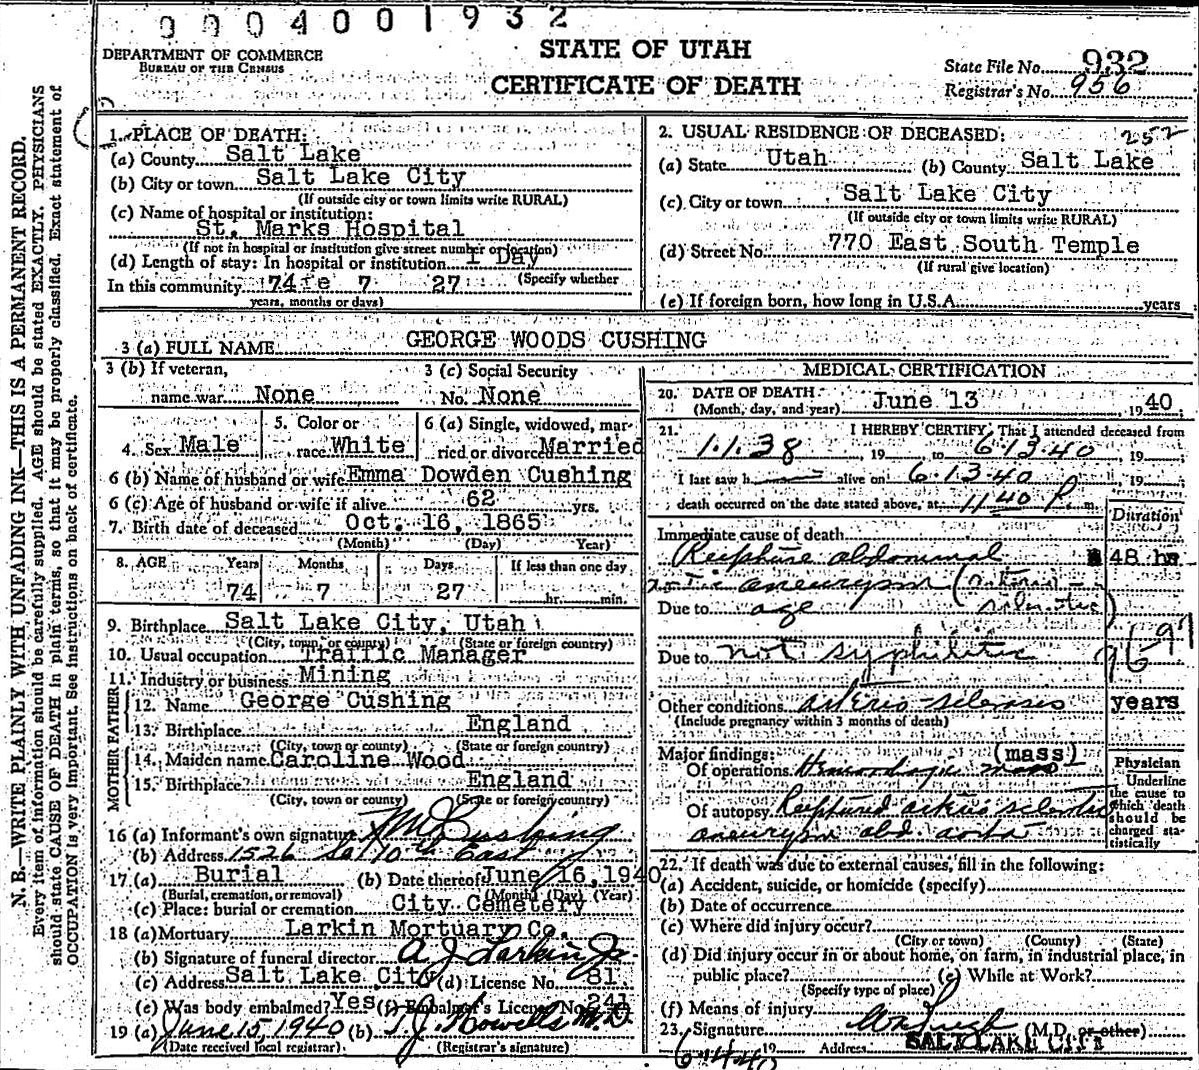 0004001932
DEPARTMENT OF COMMERCE
BUREAU OF THE CENSUS
STATE OF UTAH
CERTIFICATE OF DEATH
State File No. 932
Registrar's No. 956
N. B.—WRITE PLAINLY WITH UNFADING INK—THIS IS A PERMANENT RECORD.
Every item of information should be carefully supplied. AGE should be stated EXACTLY. PHYSICIANS
should state CAUSE OF DEATH in plain terms, so that it may be properly classified. Exact statement of
OCCUPATION is very important. See instructions on back of certificate.
1. PLACE OF DEATH:
(a) County Salt Lake
(b) City or town Salt Lake City
(If outside city or town limits write RURAL)
(c) Name of hospital or institution:
St. Marks Hospital
(If not in hospital or institution give street number or location)
(d) Length of stay: In hospital or institution 1 Day
(Specify whether
In this community 74 7 27
years, months or days)
2. USUAL RESIDENCE OF DECEASED: 252
(a) State Utah (b) County Salt Lake
(c) City or town Salt Lake City
(If outside city or town limits write RURAL)
(d) Street No. 770 East South Temple
(If rural give location)
(e) If foreign born, how long in U.S.A. years
3 (a) FULL NAME GEORGE WOODS CUSHING
3 (b) If veteran,
name war None
3 (c) Social Security
No. None
4. Sex Male
5. Color or
race White
6 (a) Single, widowed, mar-
ried or divorced Married
6 (b) Name of husband or wife Emma Dowden Cushing
6 (c) Age of husband or wife if alive 62 yrs.
7. Birth date of deceased Oct. 16, 1865
(Month) (Day) Year)
8. AGE Years Months Days If less than one day
74 7 27 hr. min.
9. Birthplace Salt Lake City, Utah
(City, town, or county) (State or foreign country)
10. Usual occupation Traffic Manager
11. Industry or business Mining
FATHER
12. Name George Cushing
13. Birthplace England
(City, town or county) (State or foreign country)
MOTHER
14. Maiden name Caroline Wood
15. Birthplace England
(City, town or county) (State or foreign country)
16 (a) Informant's own signature Cushing
(b) Address 1526 So. 10th East
17. (a) Burial (b) Date thereof June 16, 1940
(Burial, cremation, or removal) (Month) (Day) (Year)
(c) Place: burial or cremation City Cemetery
18 (a) Mortuary Larkin Mortuary Co.
(b) Signature of funeral director A J Larkin Jr.
(c) Address Salt Lake City (d) License No. 81
(e) Was body embalmed? Yes (f) Embalmer's License No. 241
19 (a) June 15, 1940 (b) T. J. Howells M.D.
(Date received local registrar). (Registrar's signature)
MEDICAL CERTIFICATION
20. DATE OF DEATH
(Month, day, and year) June 13 19 40
21. I HEREBY CERTIFY, That I attended deceased from
1.1.38 19 to 6.13.40 19
I last saw h alive on 6.13.40 19
death occurred on the date stated above, at 11 40 P. m.
Duration
Immediate cause of death
Rupture abdominal 48 hs
aortic aneurysm (arterio-
Due to age sclerotic)
Due to not syphilitic 96-97
Other conditions arterio-sclerosis years
(Include pregnancy within 3 months of death)
Major findings: (mass)
Of operations Hemorrhagic mass
Of autopsy Ruptured arterio sclerotic
aneurysm abd. aorta
Physician
Underline
the cause to
which death
should be
charged sta-
tistically
22. If death was due to external causes, fill in the following:
(a) Accident, suicide, or homicide (specify)
(b) Date of occurrence
(c) Where did injury occur?
(City or town) (County) (State)
(d) Did injury occur in or about home, on farm, in industrial place, in
public place? (e) While at Work?
(Specify type of place)
(f) Means of injury
23. Signature (M.D. or other)
6 14 40 19 Address SALT LAKE CITY